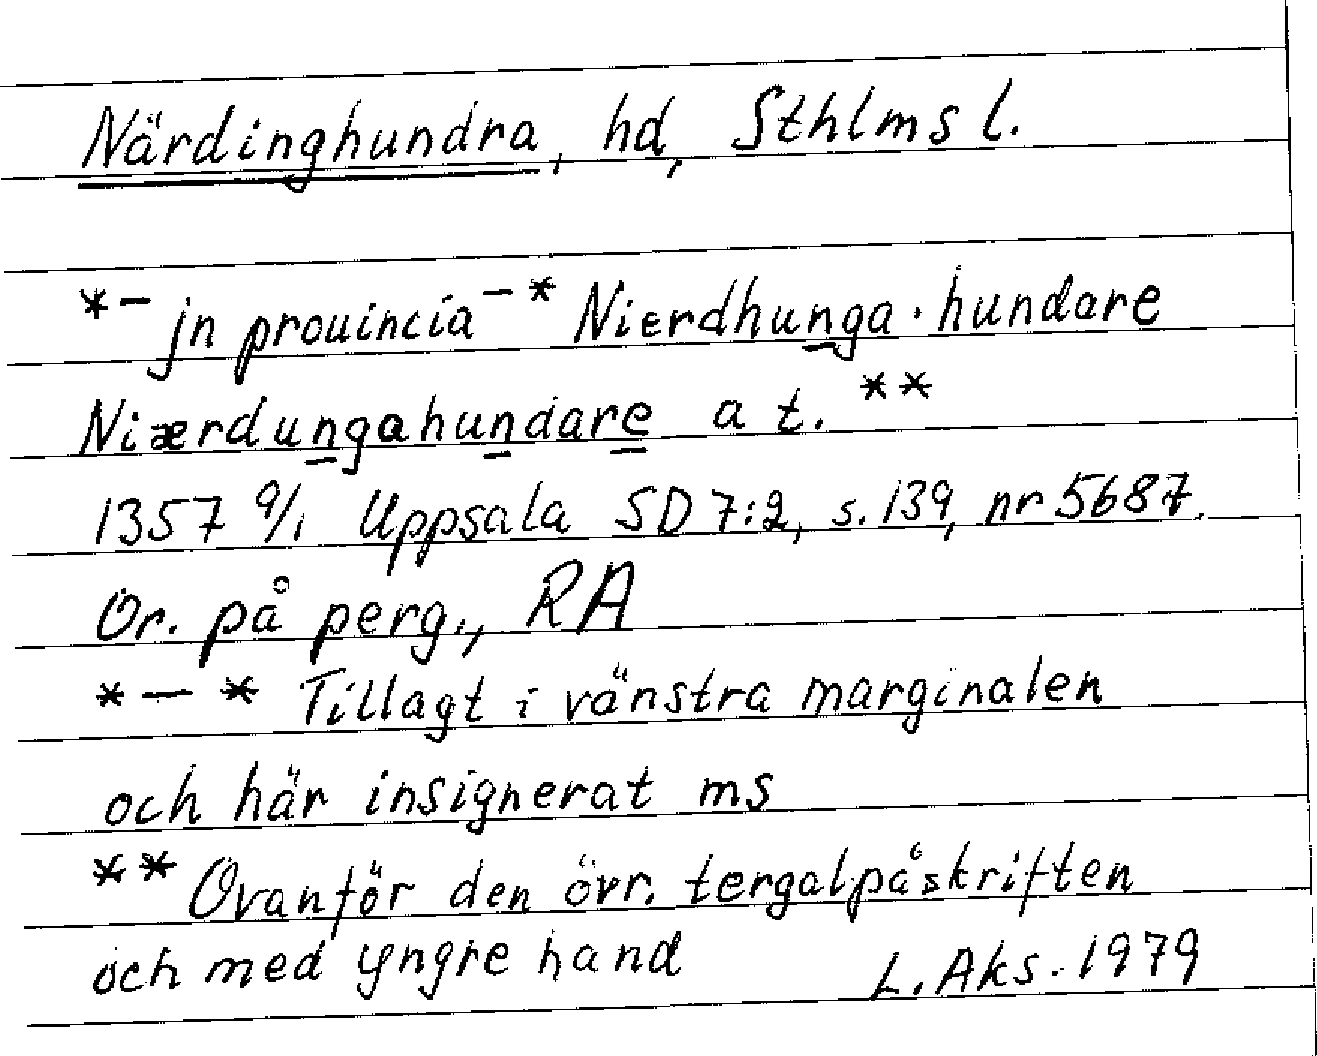 Närdinghundra, hd, Sthlms l.
*– jn prouincia –* Niɛrdhunga·hundare
Niærdungahundare a t. **
1357 9/1 Uppsala SD 7:2, s. 139, nr 5687.
Or. på perg., RA
*–* Tillagt i vänstra marginalen
och här insignerat ms
** Ovanför den övr. tergalpåskriften
och med yngre hand L. Aks. 1979